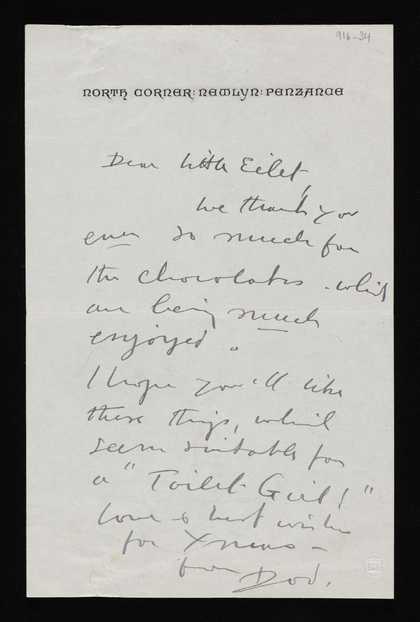 916-34
NORTH CORNER: NEWLYN: PENZANCE
Dear little Eilet,
We thank you
ever so much for
the chocolates - which
are being much
enjoyed.
I hope you'll like
these things, which
seem suitable for
a "Toilet Girl!"
love & best wishes
for Xmas -
from Dod.